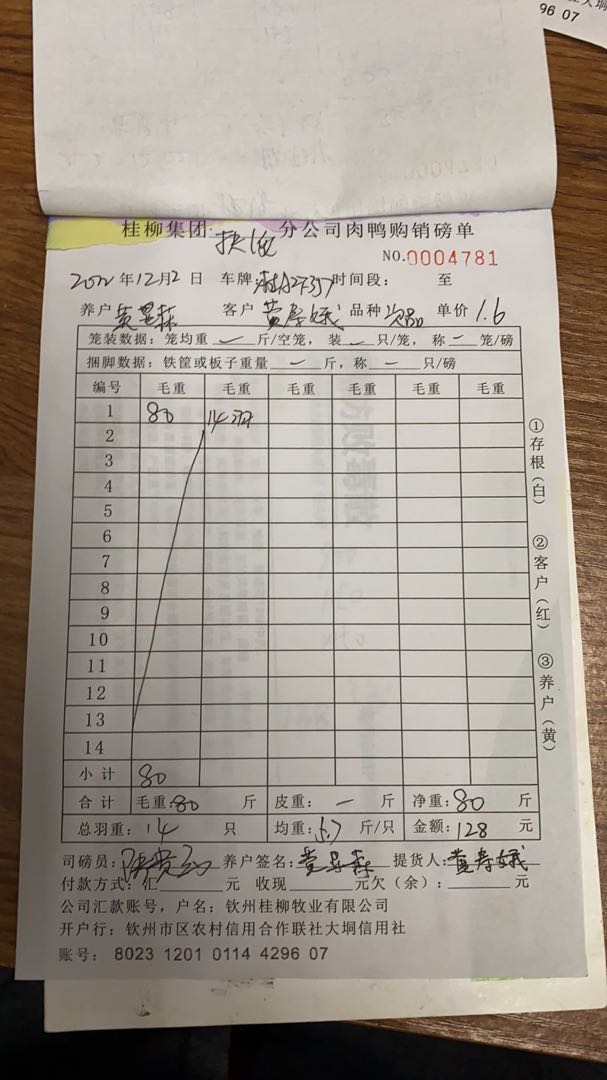 96 07
桂柳集团 分公司肉鸭购销磅单
NO.0004781
年12月2日 车牌 时间段: 至
养户 客户 黄寿娥 品种 次品 单价 1.6
笼装数据: 笼均重 — 斤/空笼, 装 — 只/笼, 称 — 笼/磅
捆脚数据: 铁筐或板子重量 — 斤, 称 — 只/磅
编号 毛重 毛重 毛重 毛重 毛重 毛重
1 80 14羽
2
3
4
5
6
7
8
9
10
11
12
13
14
小计 80
合计 毛重:80 斤 皮重: — 斤 净重: 80 斤
总羽重: 14 只 均重: 5.7 斤/只 金额: 128 元
司磅员: 养户签名: 提货人: 黄寿娥
付款方式: 汇 元 收现 元欠(余): 元
公司汇款账号, 户名: 钦州桂柳牧业有限公司
开户行: 钦州市区农村信用合作联社大垌信用社
账号: 8023 1201 0114 4296 07
①存根(白)
②客户(红)
③养户(黄)